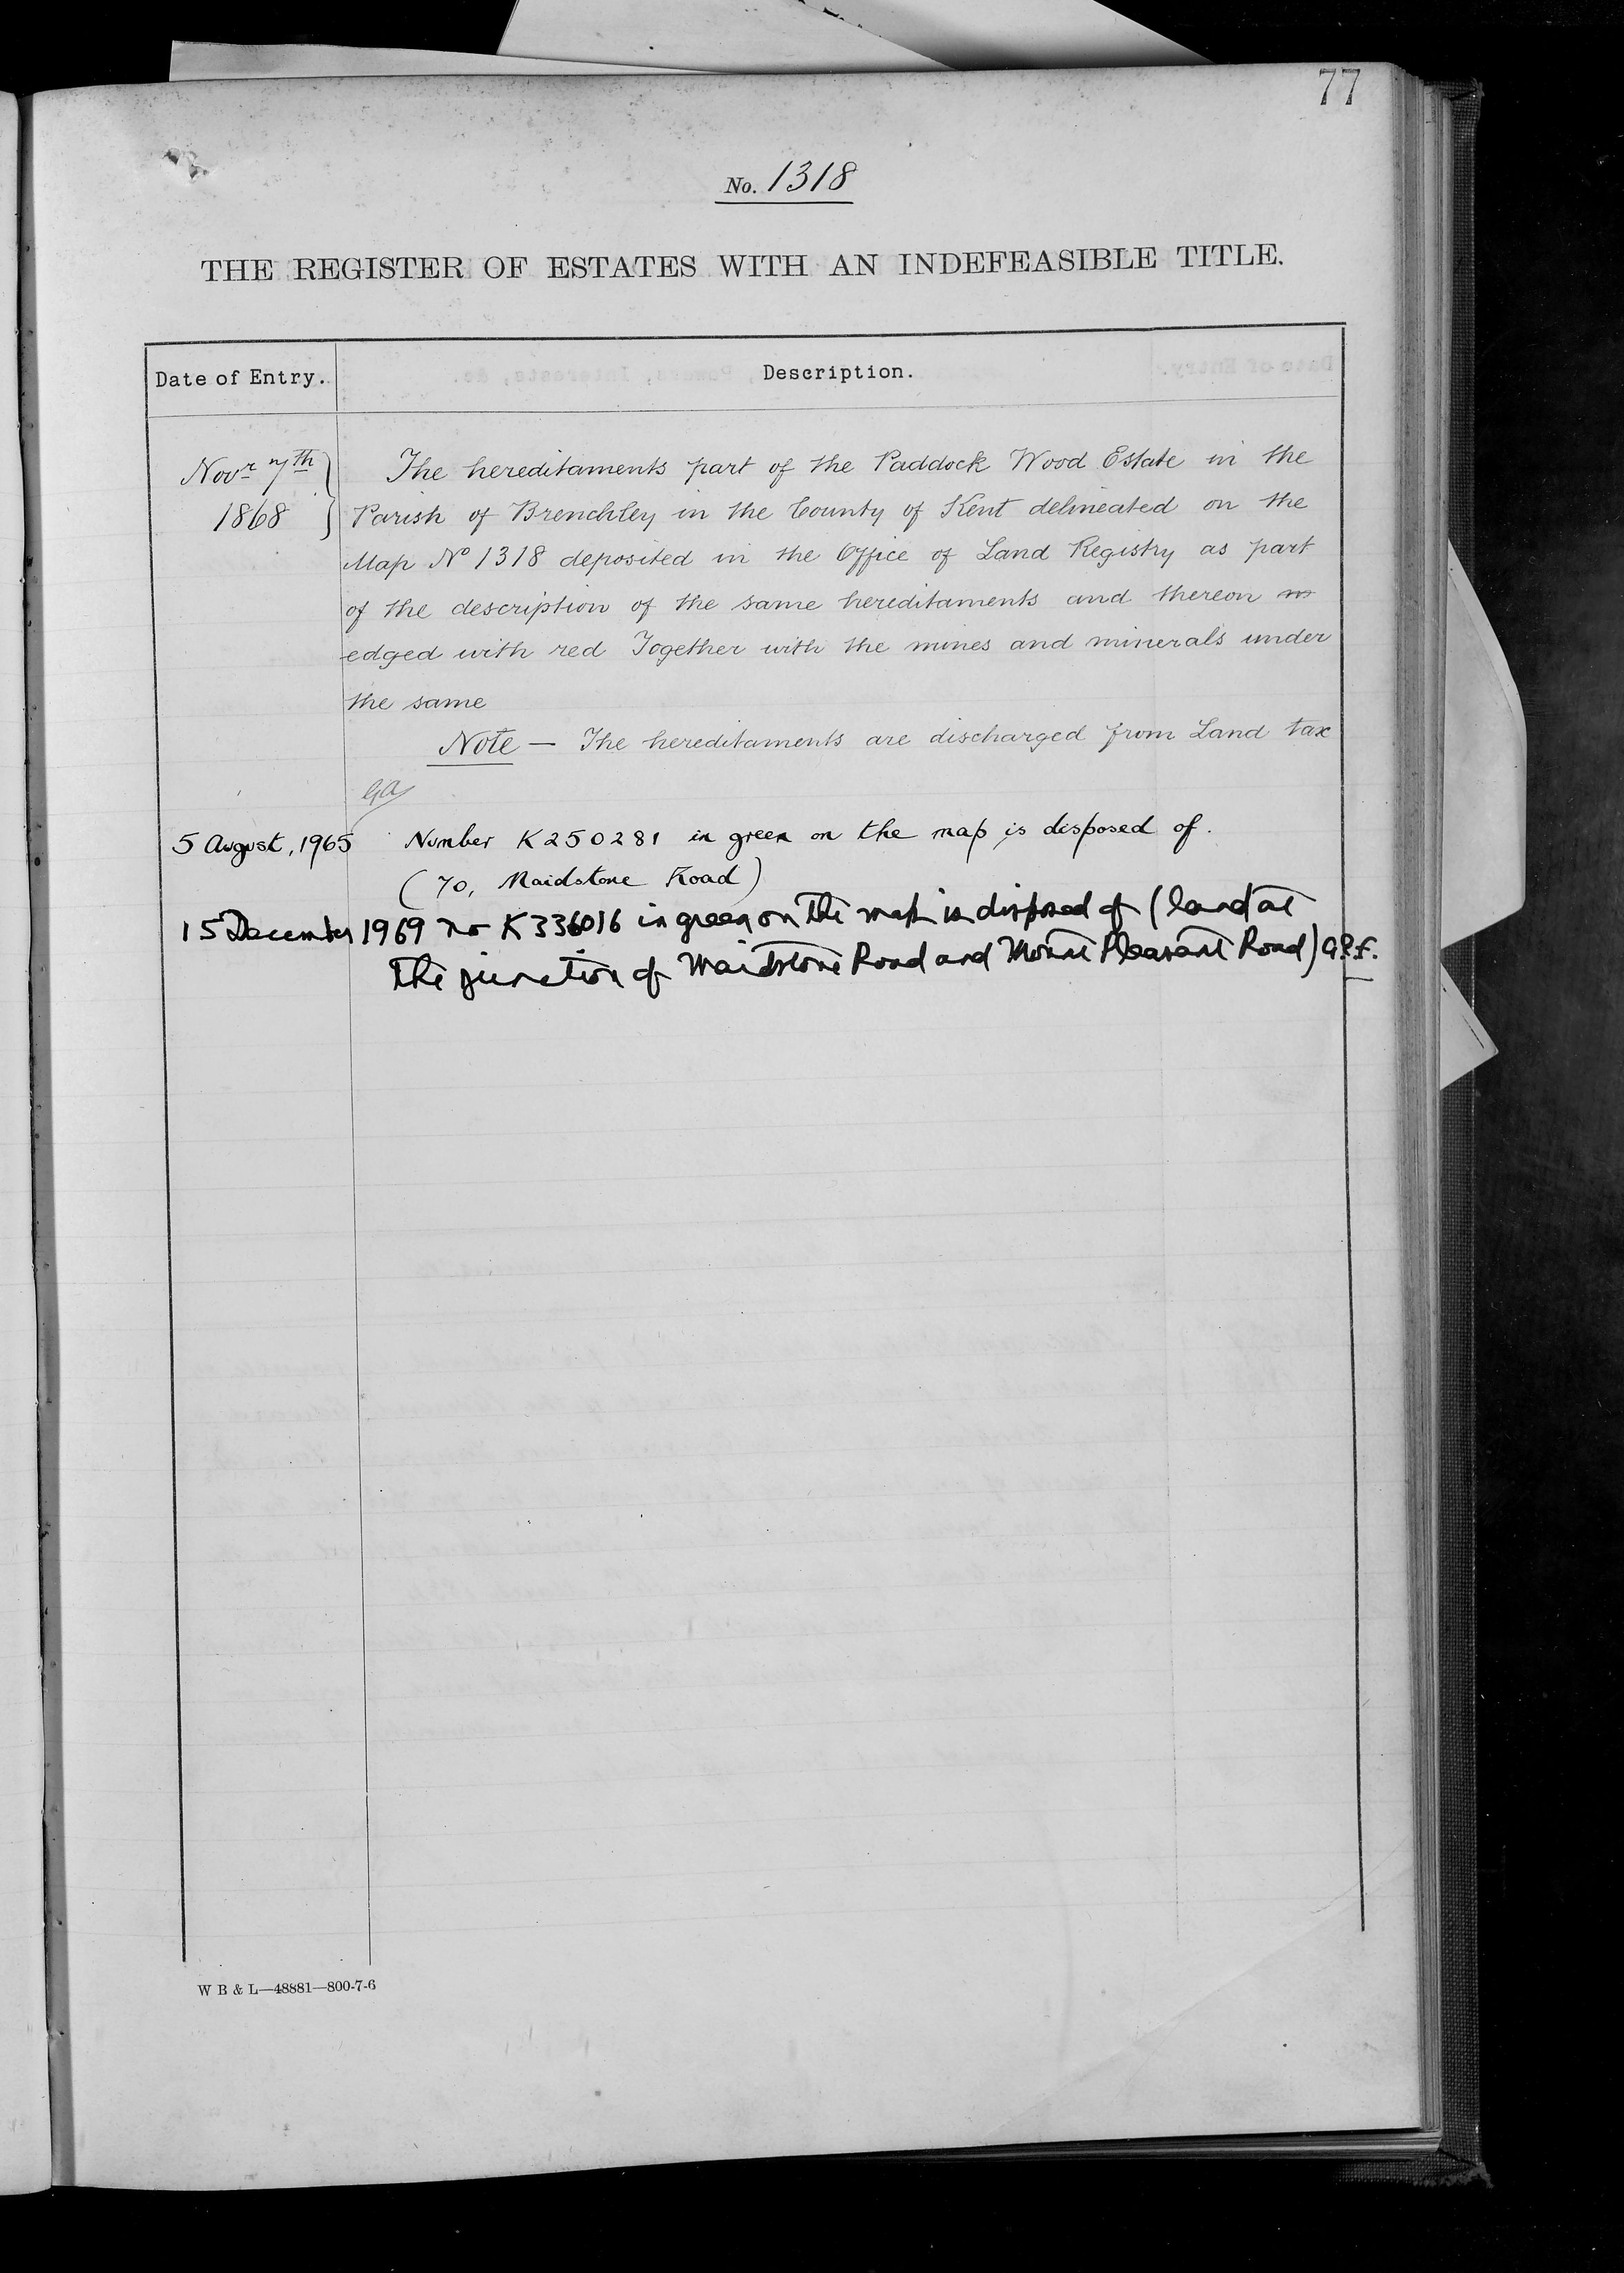 77
No. 1318
THE REGISTER OF ESTATES WITH AN INDEFEASIBLE TITLE.
Date of Entry. Description.
Novr 7th The hereditaments part of the Paddock Wood Estate in the
1868 Parish of Brenchley in the County of Kent delineated on the
Map No 1318 deposited in the Office of Land Registry as part
of the description of the same hereditaments and thereon
edged with red Together with the mines and minerals under
the same
Note — The hereditaments are discharged from Land tax
GA
5 August, 1965 Number K250281 in green on the map is disposed of.
(70, Maidstone Road)
15 December 1969 no K336016 in green on the map is disposed of (land at
the junction of Maidstone Road and Mount Pleasant Road) G.P.F.
W B & L—48881—800-7-6